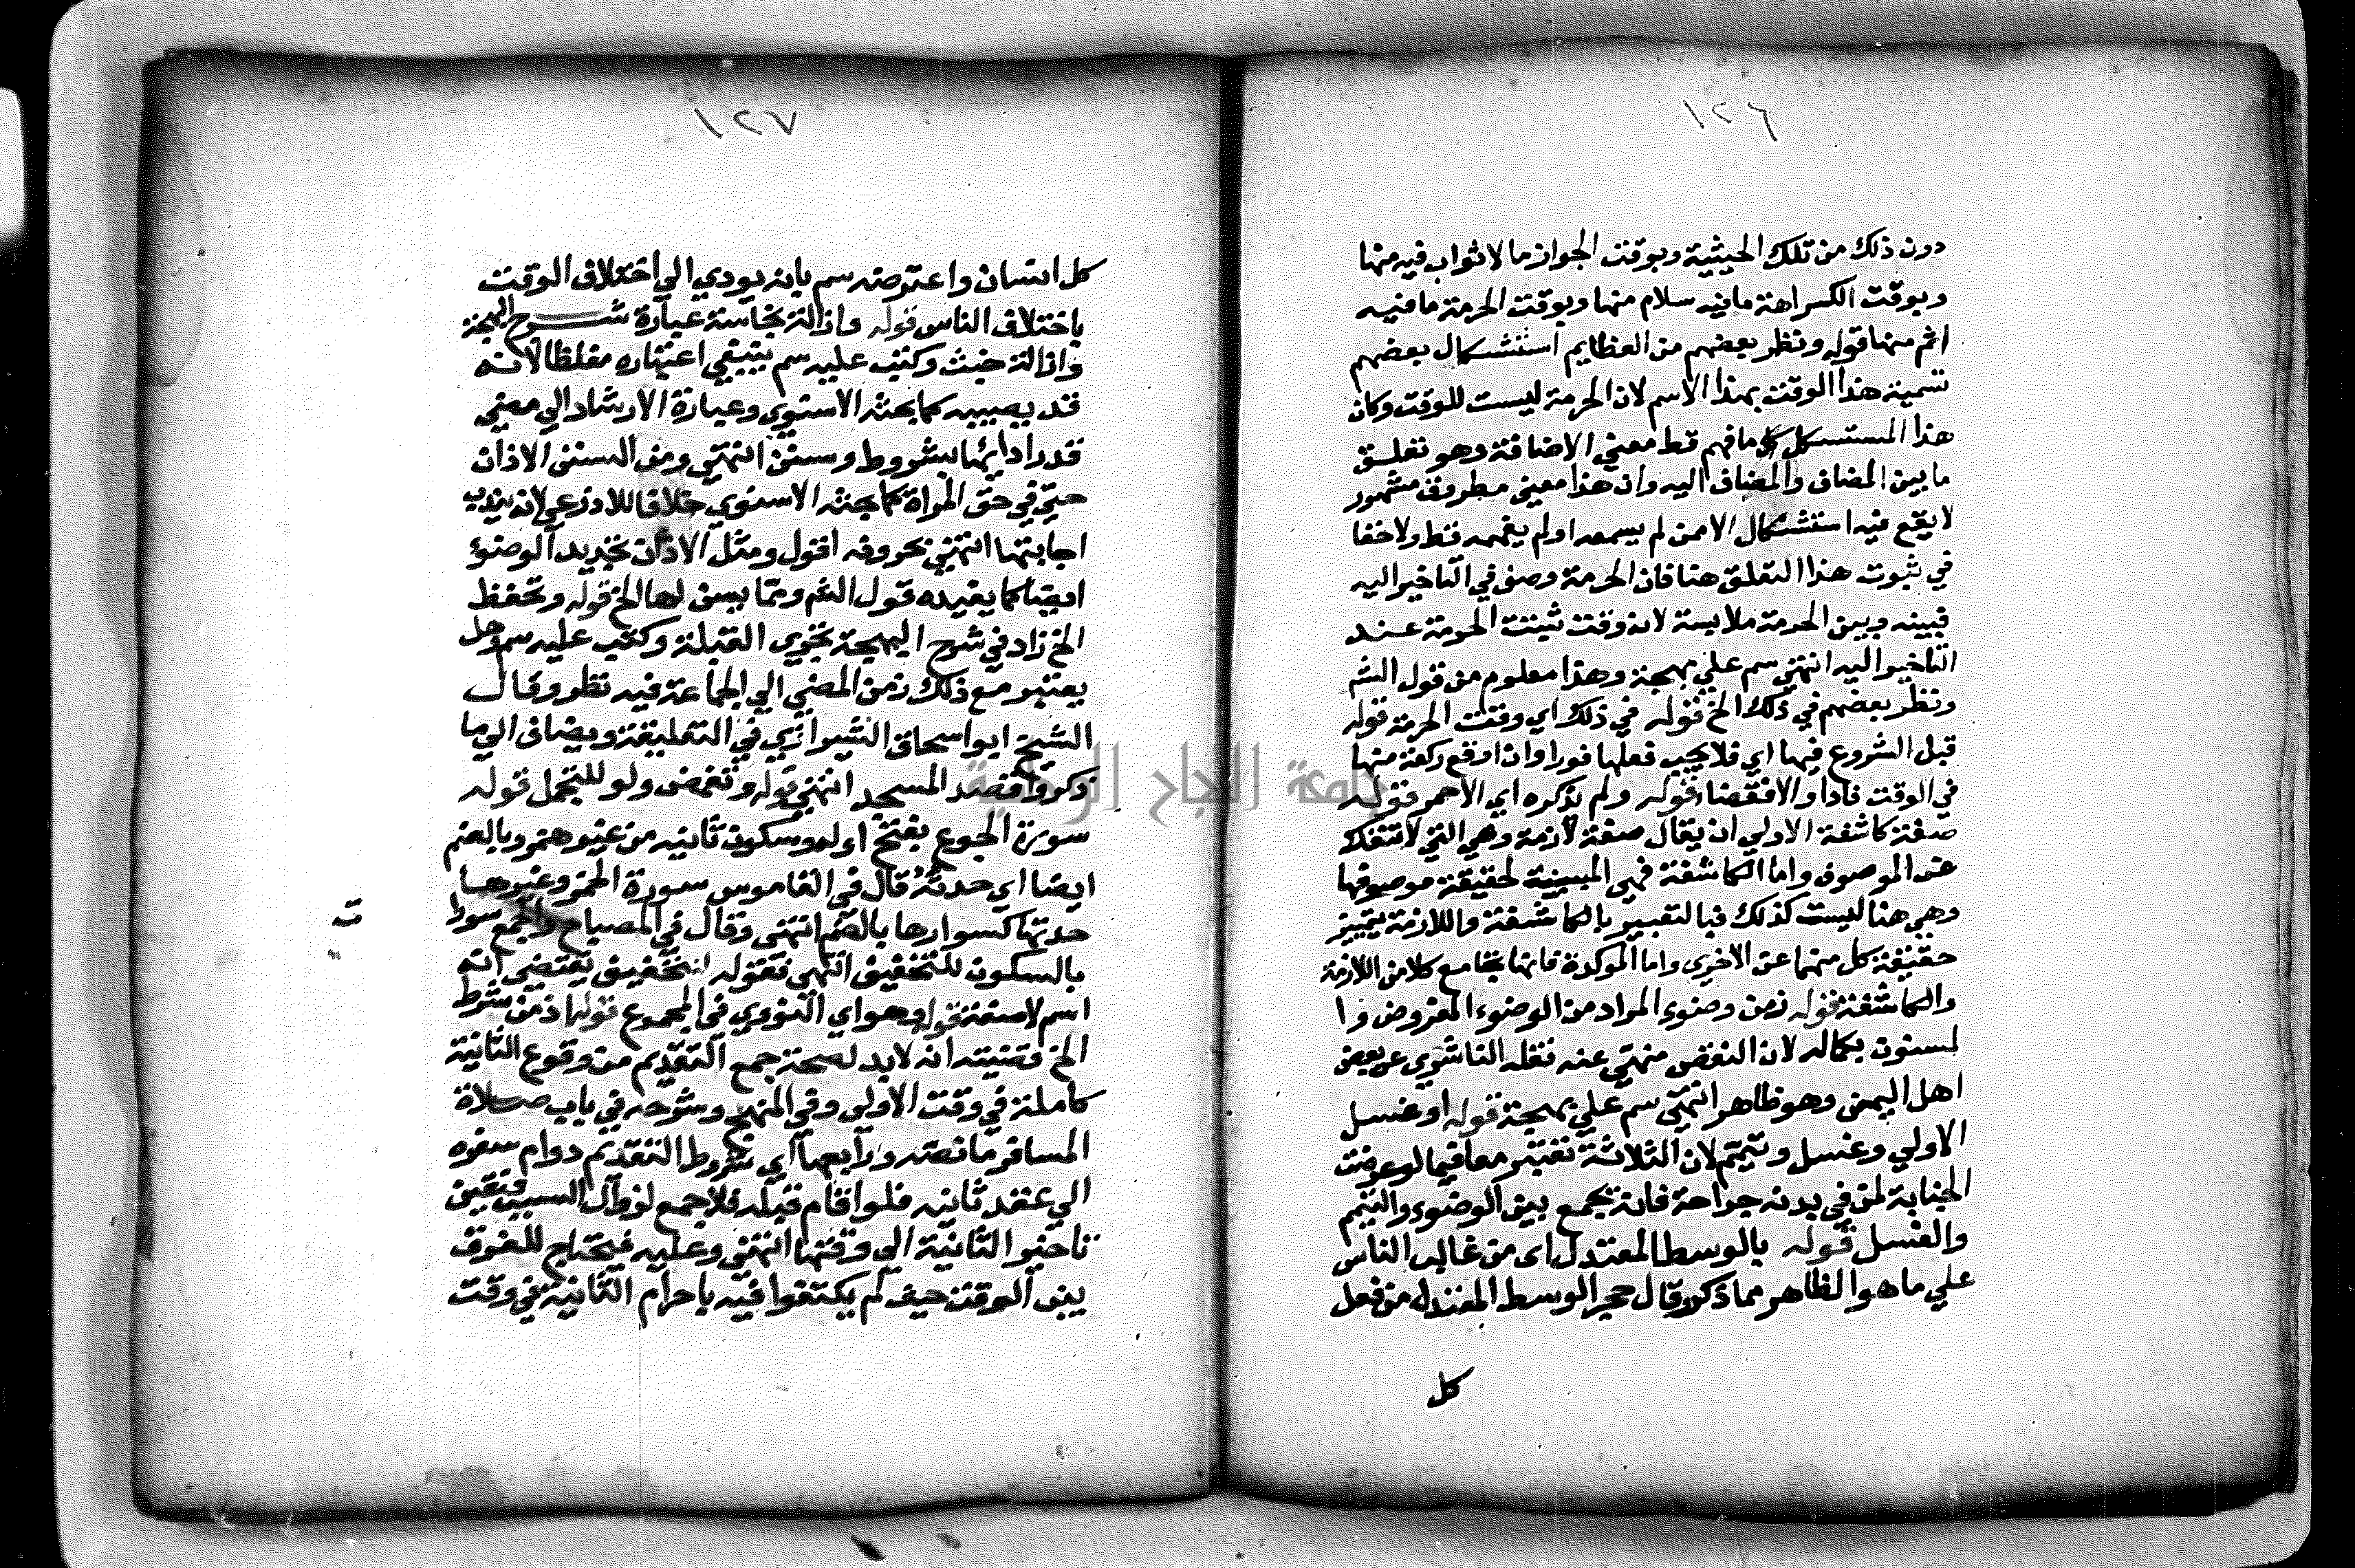 ١٢٦
دون ذلك من تلك الحيثية وبوقت الجواز ما لا ثواب فيه منها
وبوقت الكراهة ما فيه سلام منها وبوقت الحرمة ما فيه
اثم منها قوله ونظر بعضهم من العظايم استشكال بعضهم
تسمية هذا الوقت بهذا الاسم لان الحرمة ليست للوقت وكان
هذا المستشكل ما فهم قط معني الاضافة وهو تعلق
ما بين المضاف والمضاف اليه وان هذا معني مطروق مشهور
لا يقع فيه استشكال الا من لم يسمعه او لم يفهمه قط ولا خفا
في ثبوت هذا التعلق هنا فان الحرمة وصف في التاخير اليه
فبينه وبين الحرمة ملابسة لانه وقت ثبتت الحرمة عند
التاخير اليه انتهي سم علي بهجة وهذا معلوم من قول الشم
ونظر بعضهم في ذلك الخ قوله في ذلك اي وقت الحرمة قوله
قبل الشروع فيها اي فلا يجب فعلها فورا وان اوقع ركعة منها
في الوقت فادا والا فقضا قوله ولم يذكره اي الاحمر قوله
صفة كاشفة الاولي ان يقال صفة لازمة وهي التي لا تنفك
عن الموصوف واما الكاشفة فهي المبينة لحقيقة موصوفها
وهي هنا ليست كذلك فبالتعبير بالكاشفة واللازمة يتميز
حقيقة كل منهما عن الاخري واما الموكدة فانها تجامع كلا من اللازمة
والكاشفة قوله زمن وضوء المراد من الوضوء المفروض وا
لمسنون بكماله لان النقص منهي عنه نقله الناشري عن بعض
اهل اليمن وهو ظاهر انتهي سم علي بهجة قوله او غسل
الاولي وغسل وتيمم لان الثلاثة تعتبر معا فيما لو عرضت
الجنابة لمن في بدنه جراحة فانه يجمع بين الوضوء والتيمم
والغسل قوله بالوسط المعتدل اي من غالب الناس
علي ما هو الظاهر مما ذكر وقال حجر الوسط المعتدل من فعل
كل
١٢٧
كل انسان واعترضه سم بانه يودي الي اختلاف الوقت
باختلاف الناس قوله وازالة نجاسة عبارة شرح البهجة
وازالة خبث وكتب عليه سم ينبغي اعتباره مغلظا لانه
قد يصيبه كما بحثه الاسنوي وعبارة الارشاد الي مضي
قدر ادايها بشروط وسنن انتهي ومن السنن الاذان
حتي في حق المراة كما بحثه الاسنوي خلافا للاذرعي لانه يندب
اجابتها انتهي بحروفه اقول ومثل الاذان تجديد الوضوء
ايضا كما يفيده قول الشم ومما يسن لها الخ قوله وتحفظ
الخ زاد في شرح البهجة تحري القبلة وكتب عليه سم وهل
يعتبر مع ذلك زمن المضي الي الجماعة فيه نظر وقال
الشيخ ابو اسحاق الشيرازي في التعليقة ويضاف الي ما
ذكروا قصد المسجد انتهي قوله وتغمض ولو للتجمل قوله
سورة الجوع بفتح اوله وسكون ثانيه من غير همز وبالضم
ايضا اي حدته قال في القاموس سورة الخمر وغيرها
حدتها كسوارها بالضم انتهي وقال في المصباح والجمع سورا
بالسكون للتخفيف انتهي فقوله لتخفيف يقتضي انه
اسم لا صفة قوله وهو اي النووي في المجموع قوله اذ من شرط
الخ قضيته انه لابد لصحة جمع التقديم من وقوع الثانية
كاملة في وقت الاولي وفي المنهج وشرحه في باب صلاة
المسافر ما نصه ورابعها اي شروط التقديم دوام سفره
الي عقد ثانيه فلو اقام قبله فلا جمع لزوال السبب فتعين
تاخير الثانية الي وقتها انتهي وعليه فيحتاج للفرق
بين الوقت حيث لم يكتفوا فيه باحرام الثانية في وقت
جامعة النجاح الوطنية